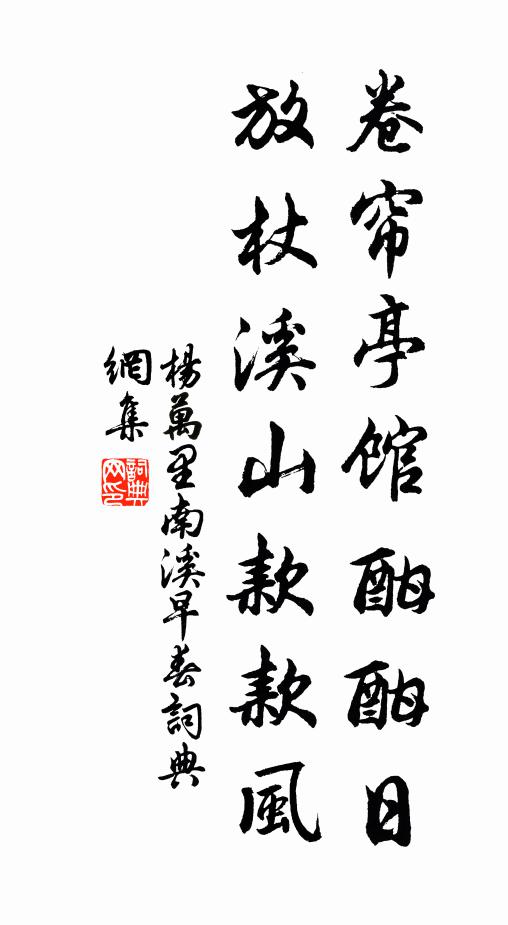 卷帘亭馆酣酣日
放杖溪山款款風
楊萬里南溪早春詞典
網集
詞典
网印